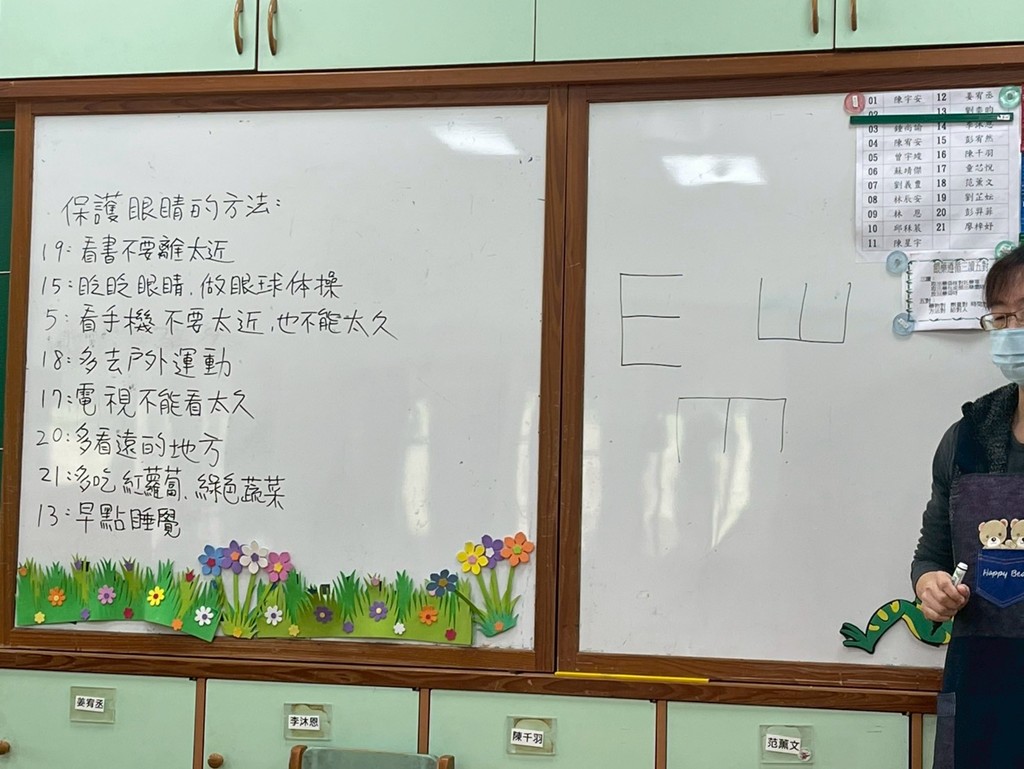 保護眼睛的方法:
19:看書不要離太近
15:眨眨眼睛、做眼球体操
5:看手機不要太近,也不能太久
18:多去戶外運動
17:電視不能看太久
20:多看遠的地方
21:多吃紅蘿蔔、綠色蔬菜
13:早點睡覺
01 陳宇安 12 姜宥丞
13
03 14
04 陳宥安 15 彭宥然
05 曾宇璦 16 陳千羽
06 蘇靖傑 17 童芯悅
07 劉義豊 18 范薰文
08 林辰安 19 劉芷妘
09 林恩 20 彭羿菲
10 邱秝蓁 21 廖梓妤
11 陳星宇
Happy Bea
姜宥丞
李沐恩
陳千羽
范薰文